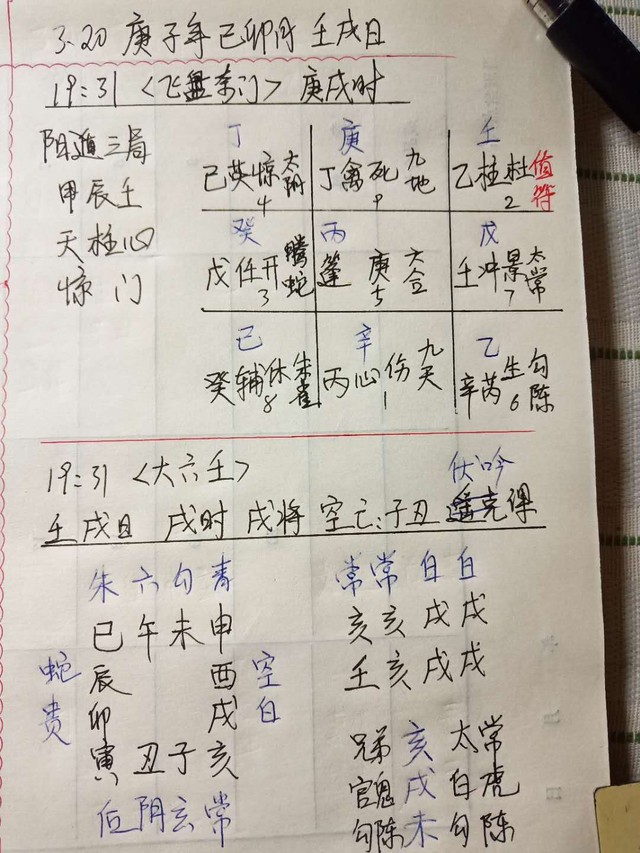 3.20 庚子年 己卯月 壬戌日
19:31 <飞盘奇门> 庚戌时
阳遁三局
甲辰壬
天柱心
惊门
丁 庚 壬
己英惊太阴 丁禽死九地 乙柱杜值符
4 9 2
癸 丙 戊
戊任开腾蛇 蓬庚六合 壬冲景太常
3 5 7
己 辛 乙
癸辅休朱雀 丙心伤九天 辛芮生勾陈
8 1 6
19:31 <大六壬> 伏吟
壬戌日 戌时 戌将 空亡:子丑 克课
朱六勾青 常常白白
巳午未申 亥亥戌戌
蛇 辰 酉 空 壬亥戌戌
贵 卯 戌 白
寅丑子亥 兄弟 亥 太常
后阴玄常 官鬼 戌 白虎
勾陈 未 勾陈